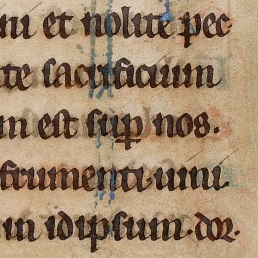 ni et nolite pec
te sacrificium
m est sup nos.
frumenti. uini
in idipsum. dor.